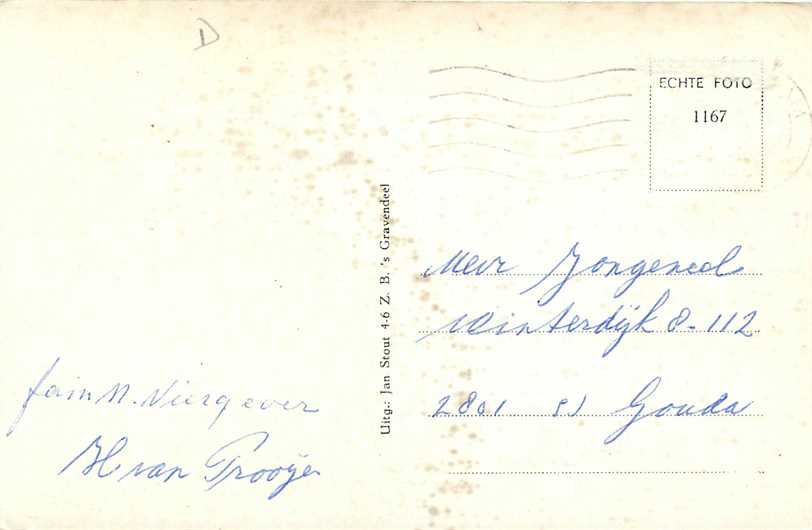 D
ECHTE FOTO
1167
Uitg.: Jan Stout 4-6 Z. B. 's Gravendeel
Mevr Jongeneel
Winterdijk 8-112
2801 SJ Gouda
fam N. Viergever
H van Prooije